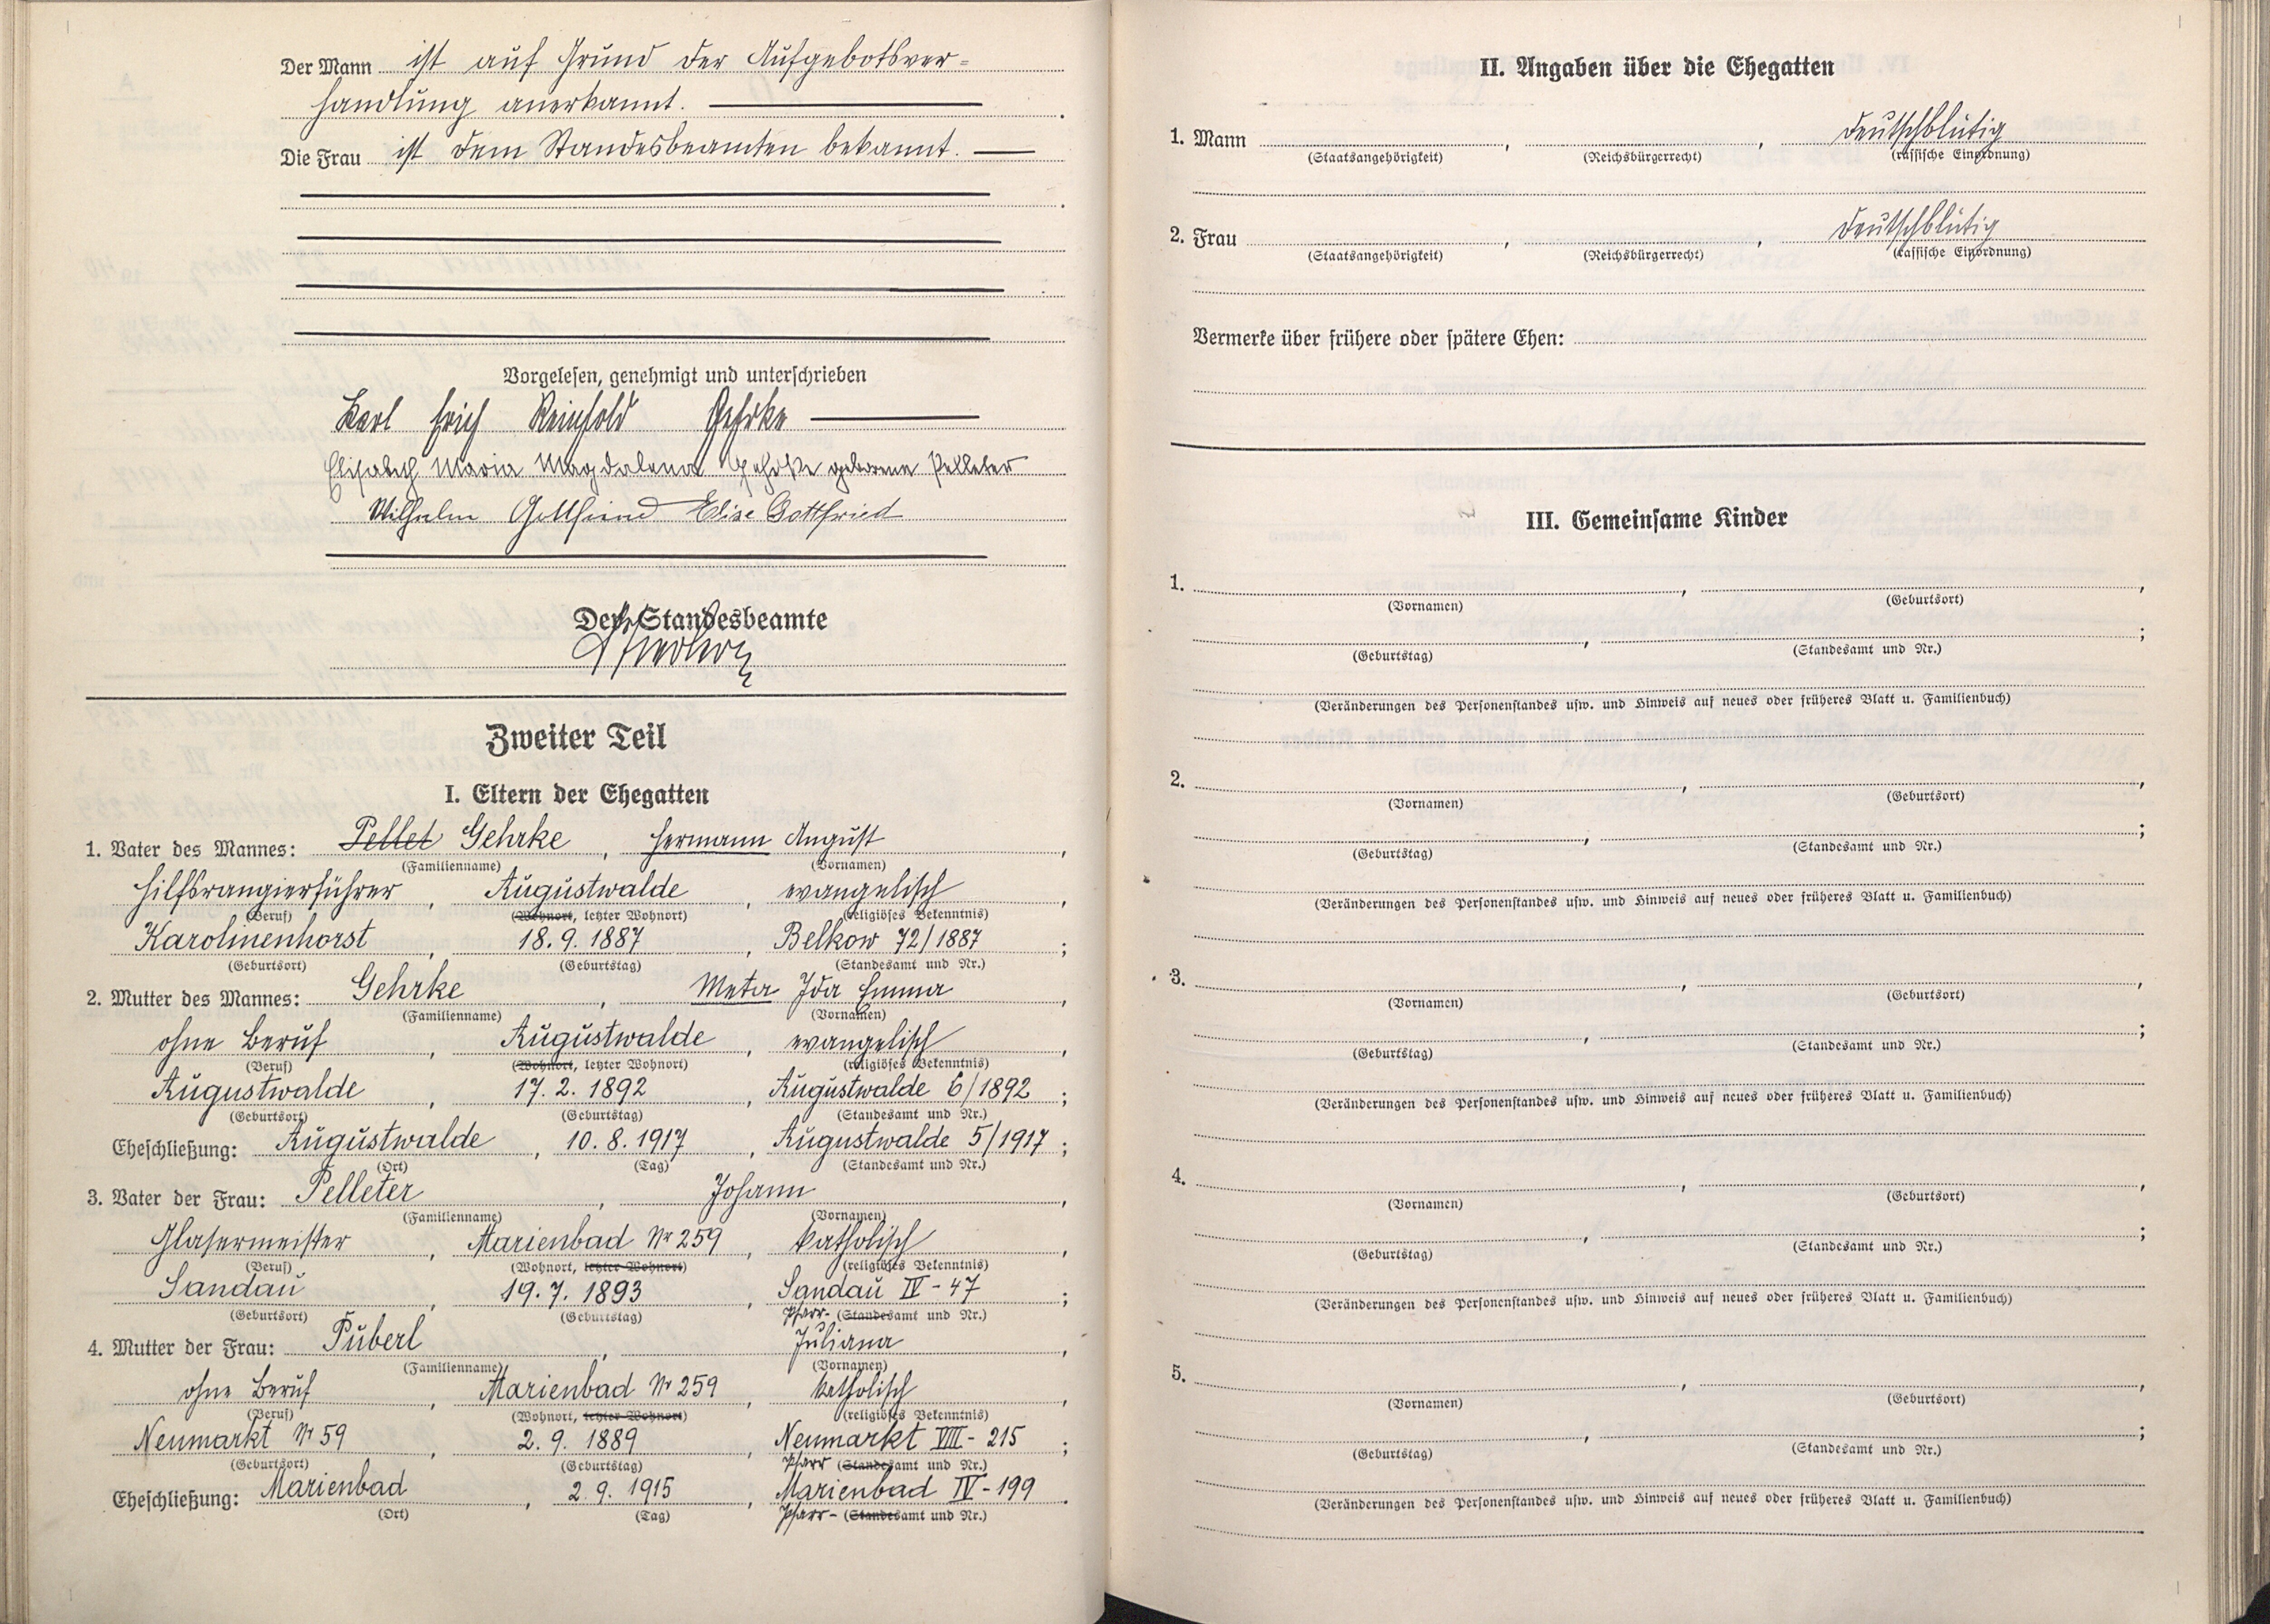 Der Mann ist auf Grund der Aufgebotsver=
handlung anerkannt.
Die Frau ist dem Standesbeamten bekannt.
Vorgelesen, genehmigt und unterschrieben
Karl Erich Reinhold Gehrke
Elisabeth Maria Magdalena Gehrke geborene Pelleter
Wilhelm Gottfried Elise Gottfried
Der Standesbeamte
Zweiter Teil
I. Eltern der Ehegatten
1. Vater des Mannes: Pellet Gehrke, Hermann August,
(Familienname) (Vornamen)
Hilfsrangierführer, Augustwalde, evangelisch,
(Beruf) (Wohnort, letzter Wohnort) (religiöses Bekenntnis)
Karolinenhorst, 18. 9. 1887, Belkow 72/1887;
(Geburtsort) (Geburtstag) (Standesamt und Nr.)
2. Mutter des Mannes: Gehrke, Meta Ida Emma,
(Familienname) (Vornamen)
ohne Beruf, Augustwalde, evangelisch,
(Beruf) (Wohnort, letzter Wohnort) (religiöses Bekenntnis)
Augustwalde, 17. 2. 1892, Augustwalde 6/1892;
(Geburtsort) (Geburtstag) (Standesamt und Nr.)
Eheschließung: Augustwalde, 10. 8. 1917, Augustwalde 5/1917;
(Ort) (Tag) (Standesamt und Nr.)
3. Vater der Frau: Pelleter, Johann,
(Familienname) (Vornamen)
Glasermeister, Marienbad Nr 259, katholisch,
(Beruf) (Wohnort, letzter Wohnort) (religiöses Bekenntnis)
Sandau, 19. 7. 1893, Sandau IV - 47;
(Geburtsort) (Geburtstag) Pfarr- (Standesamt und Nr.)
4. Mutter der Frau: Püberl, Juliana,
(Familienname) (Vornamen)
ohne Beruf, Marienbad Nr 259, katholisch,
(Beruf) (Wohnort, letzter Wohnort) (religiöses Bekenntnis)
Neumarkt Nr 59, 2. 9. 1889, Neumarkt VIII - 215;
(Geburtsort) (Geburtstag) Pfarr (Standesamt und Nr.)
Eheschließung: Marienbad, 2. 9. 1915, Marienbad IV - 199.
(Ort) (Tag) Pfarr- (Standesamt und Nr.)
II. Angaben über die Ehegatten
1. Mann , , deutschblütig
(Staatsangehörigkeit) (Reichsbürgerrecht) (rassische Einordnung)
2. Frau , , deutschblütig
(Staatsangehörigkeit) (Reichsbürgerrecht) (rassische Einordnung)
Vermerke über frühere oder spätere Ehen:
III. Gemeinsame Kinder
1. , ,
(Vornamen) (Geburtsort)
, ;
(Geburtstag) (Standesamt und Nr.)
(Veränderungen des Personenstandes usw. und Hinweis auf neues oder früheres Blatt u. Familienbuch)
2. , ,
(Vornamen) (Geburtsort)
, ;
(Geburtstag) (Standesamt und Nr.)
(Veränderungen des Personenstandes usw. und Hinweis auf neues oder früheres Blatt u. Familienbuch)
3. , ,
(Vornamen) (Geburtsort)
, ;
(Geburtstag) (Standesamt und Nr.)
(Veränderungen des Personenstandes usw. und Hinweis auf neues oder früheres Blatt u. Familienbuch)
4. , ,
(Vornamen) (Geburtsort)
, ;
(Geburtstag) (Standesamt und Nr.)
(Veränderungen des Personenstandes usw. und Hinweis auf neues oder früheres Blatt u. Familienbuch)
5. , ,
(Vornamen) (Geburtsort)
, ;
(Geburtstag) (Standesamt und Nr.)
(Veränderungen des Personenstandes usw. und Hinweis auf neues oder früheres Blatt u. Familienbuch)